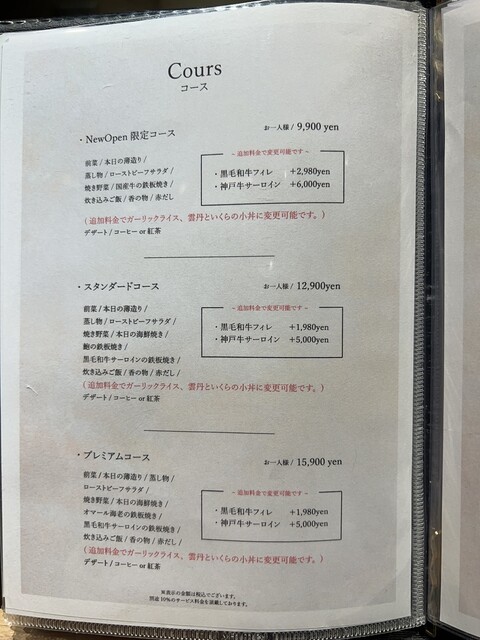 Cours
コース
・NewOpen 限定コース
お一人様 / 9,900 yen
前菜 / 本日の薄造り /
蒸し物 / ローストビーフサラダ /
焼き野菜 / 国産牛の鉄板焼き /
炊き込みご飯 / 香の物 / 赤だし
～ 追加料金で変更可能です ～
・黒毛和牛フィレ +2,980yen
・神戸牛サーロイン +6,000yen
( 追加料金でガーリックライス、雲丹といくらの小丼に変更可能です。)
デザート / コーヒー or 紅茶
・スタンダードコース
お一人様 / 12,900yen
前菜 / 本日の薄造り /
蒸し物 / ローストビーフサラダ /
焼き野菜 / 本日の海鮮焼き /
鮑の鉄板焼き /
黒毛和牛サーロインの鉄板焼き /
炊き込みご飯 / 香の物 / 赤だし /
～ 追加料金で変更可能です ～
・黒毛和牛フィレ +1,980yen
・神戸牛サーロイン +5,000yen
( 追加料金でガーリックライス、雲丹といくらの小丼に変更可能です。)
デザート / コーヒー or 紅茶
・プレミアムコース
お一人様 / 15,900 yen
前菜 / 本日の薄造り / 蒸し物 /
ローストビーフサラダ /
焼き野菜 / 本日の海鮮焼き /
オマール海老の鉄板焼き /
黒毛和牛サーロインの鉄板焼き /
炊き込みご飯 / 香の物 / 赤だし /
～ 追加料金で変更可能です ～
・黒毛和牛フィレ +1,980yen
・神戸牛サーロイン +5,000yen
( 追加料金でガーリックライス、雲丹といくらの小丼に変更可能です。)
デザート / コーヒー or 紅茶
※表示の金額は税込でございます。
別途 10%のサービス料金を頂戴しております。